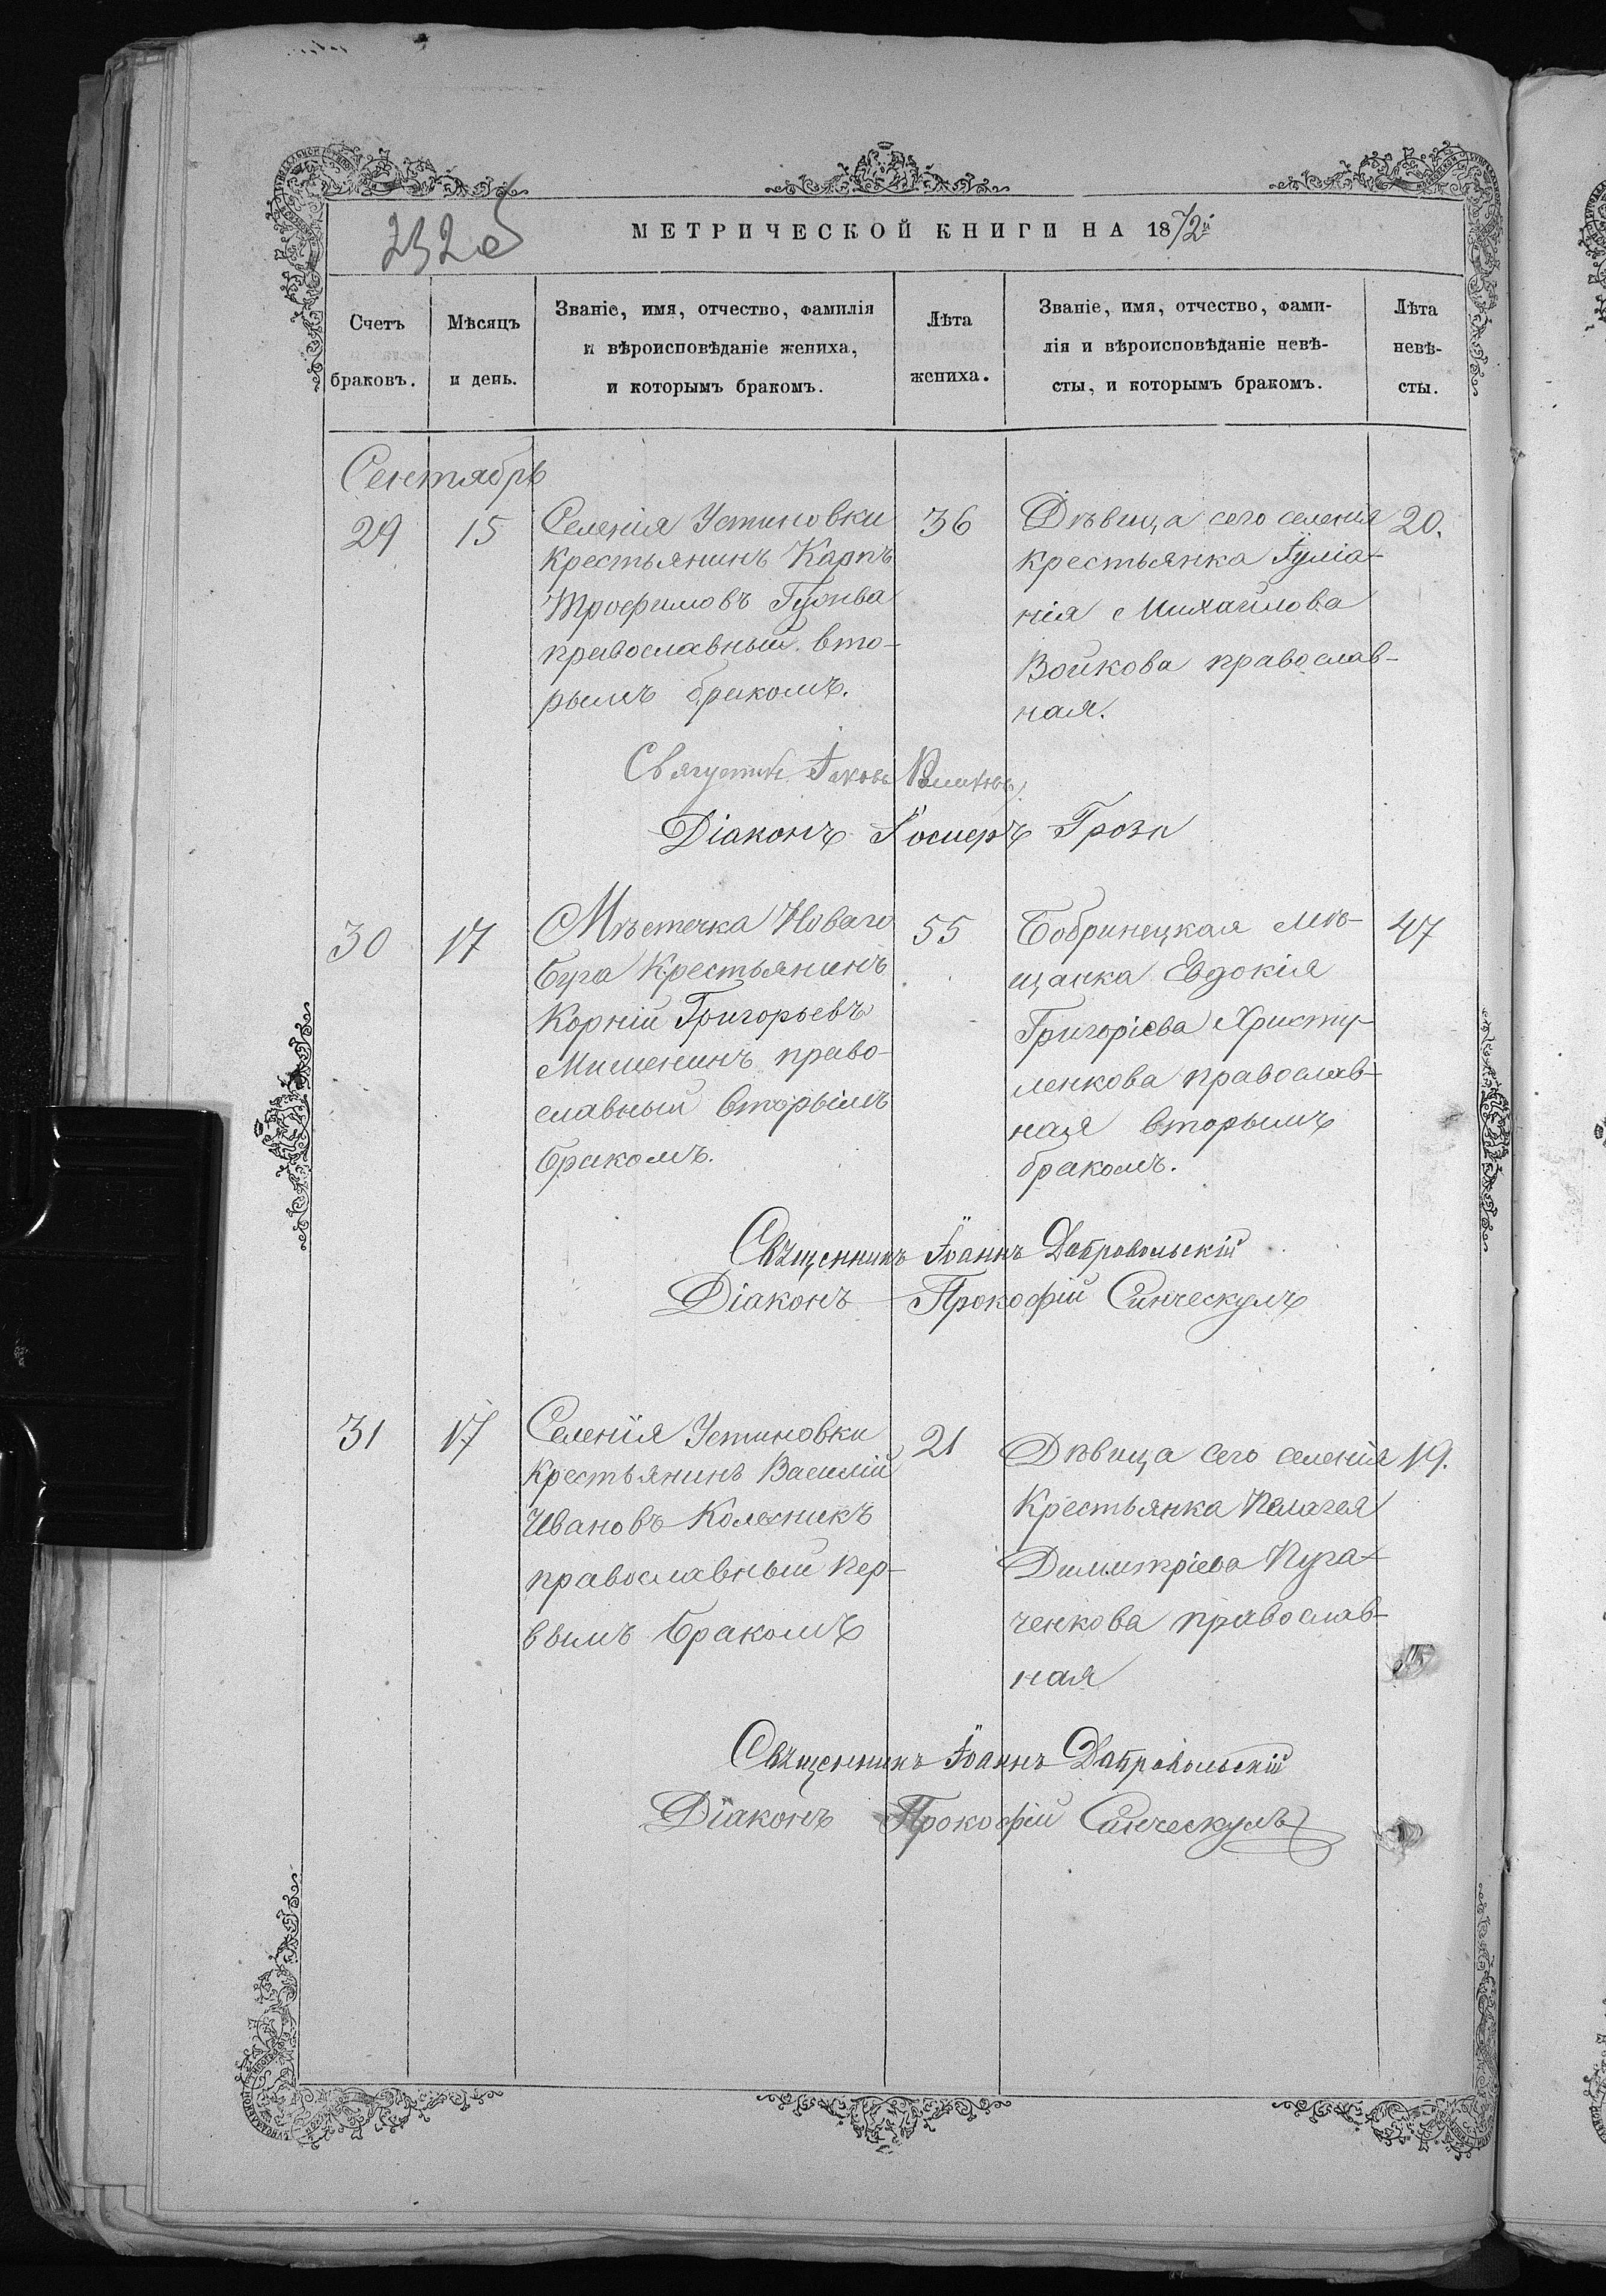 МЕТРИЧЕСКОЙ КНИГИ НА 1872й
Счетъ браковъ.
Мѣсяцъ и день.
Званіе, имя, отчество, фамилія
и вѣроисповѣданіе жениха,
и которымъ бракомъ.
Лѣта жениха.
Званіе, имя, отчество, фами-
лія и вѣроисповѣданіе невѣ-
сты, и которымъ бракомъ.
Лѣта невѣ-
сты.
Сентябрь
29
15
Селенія Устиновки
крестьянинъ Карпъ
Трофимовъ
православный вто-
рымъ бракомъ.
36
Дѣвица сего селенія
крестьянка Іуліа-
нія Михайлова
Войкова православ-
ная.
20.
Іаковъ
Діаконъ Гроза
30
17
Мѣстечка Новаго
Буга Крестьянинъ
Корній Григорьевъ
Мишенинъ право-
славный вторымъ
бракомъ.
55
Бобринецкая мѣ-
щанка Евдокія
Григоріева Христу-
ленкова православ-
ная вторымъ
бракомъ.
47
Священникъ Іоаннъ Добровольскій
Діаконъ Прокофій Синческулъ
31
17
Селенія Устиновки
Крестьянинъ Василій
Ивановъ Колесникъ
православный пер-
вымъ бракомъ
21
Дѣвица сего селенія
Крестьянка Пелагея
Димитріева Пуга-
ченкова православ-
ная
19.
Священникъ Іоаннъ Добровольскій
Діаконъ Прокофій Синческулъ